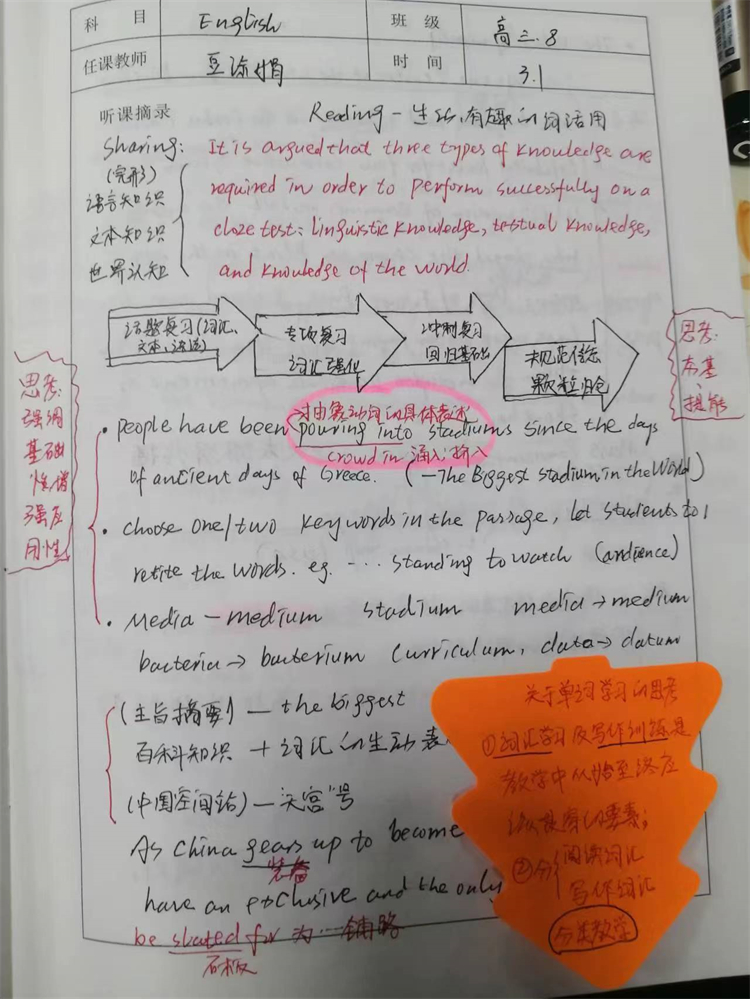 科 目 English 班 级 高三.8
任课教师 豆淙娟 时 间 3.1
听课摘录 Reading - 生动、有趣的词活用
Sharing: It is argued that three types of knowledge are
(完形)
语言知识 required in order to perform successfully on a
文本知识 cloze test: linguistic knowledge, textual knowledge,
世界认知 and knowledge of the world.
话题复习(词汇、
文本、语法)
专项复习
词汇强化
冲刺复习
回归基础
规范传达
颗粒归仓
思考:
夯基
提能
思考:
强调
基础
性增
强应
用性
对由多动词的具体叙述
• people have been pouring into stadiums since the days
crowd in 涌入;挤入
of ancient days of Greece. (-The Biggest stadium in the World)
• choose one/two key words in the passage, let students to
retite the words. eg. ... standing to watch (audience)
• Media - medium stadium media → medium
bacteria → bacterium curriculum, data → datum
(主旨摘要) — the biggest
百科知识 + 词汇的生动表
(中国空间站) — 天宫"号
As China gears up to become
装备
have an exclusive and the only
be slated for 为…铺路
石板
关于单词学习的思考
①词汇学习及写作训练是
教学中从始至终应
该贯穿的要素;
②分 阅读词汇
写作词汇
分类教学